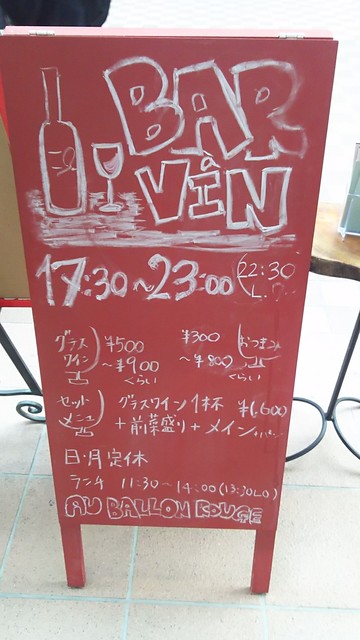 BAR
à
VIN
17:30~23:00 (22:30
L.
グラスワイン ¥500~¥900くらい
¥300~¥800くらい おつまみ
セットメニュー グラスワイン1杯 ¥1,600
+前菜盛り+メイン
日・月定休
ランチ 11:30~14:00(13:30LO)
AU BALLON ROUGE